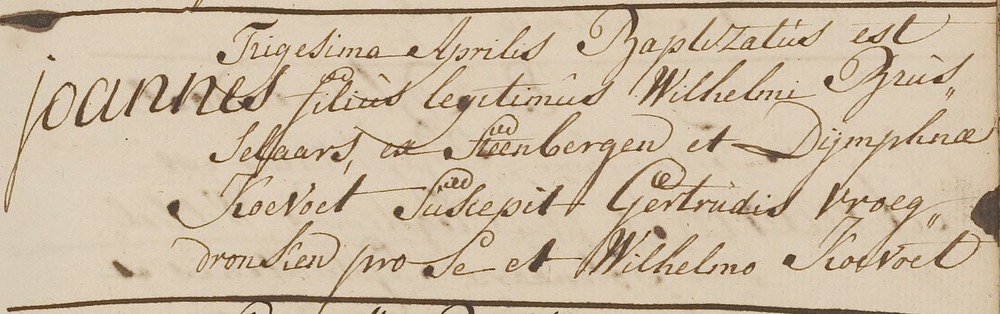 Trigesima Aprilis Baptizatus est
joannes filius legitimus Wilhelmi Brus„
selaars, ex Steenbergen et Dijmphnae
Koevoet Suscepit Gertrudis Vroeg„
dronken pro se et Wilhelmo Koevoet